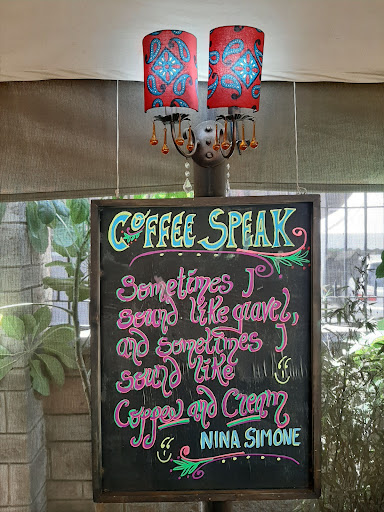 COFFEE SPEAK
Sometimes I
sound like gravel,
and sometimes I
sound like
Coffew and Cream
NINA SIMONE